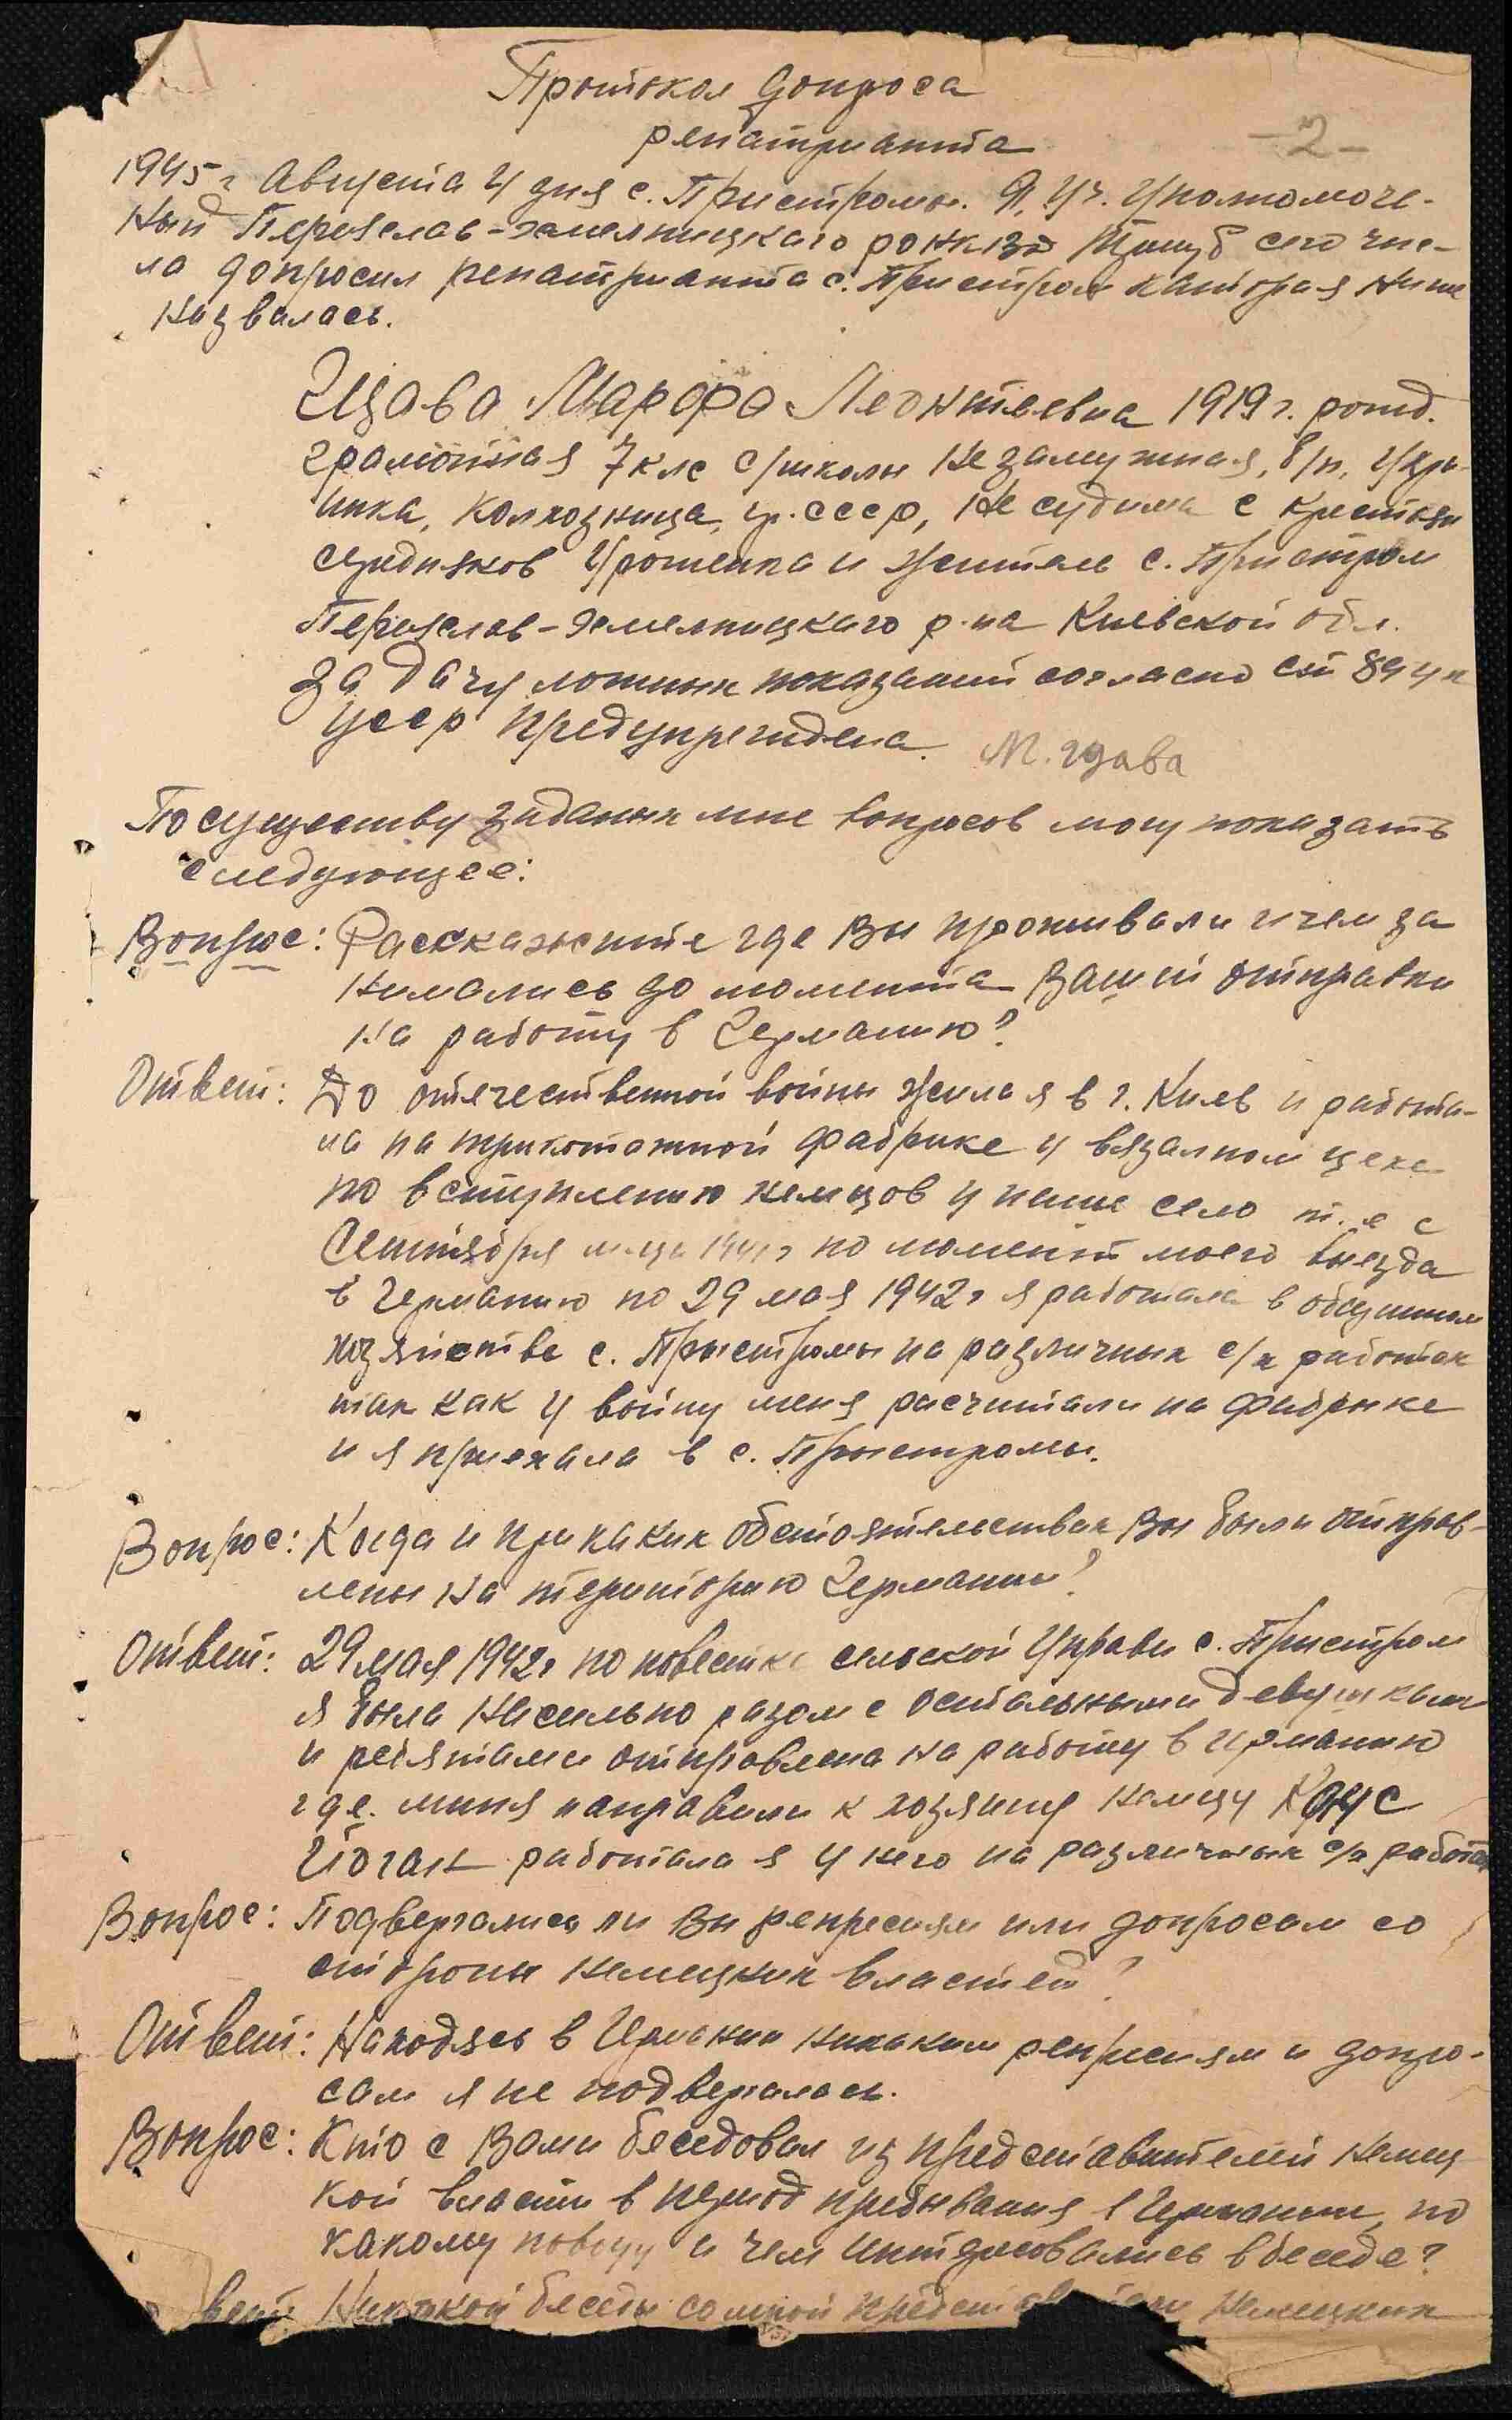 Протокол допроса
репатрианта
-2-
1945 г Августа 4 дня с. Пристромы. Я, Уч. Уполномоче-
ный Переяслав-хмелницкаго РОНКВД сего чис-
ла допросил репатрианта с. Пристром каторая ниже
назвалась.
Гцава Марфа Леонтьевна 1919 г. рожд.
грамотная 7 клс с/школы не замужная, б/п, Укра-
инка, колхозница, гр. СССР, не судима с крестьян
середняков Уроженка и жители с. Пристром
Переяслав-хмелницкаго р-на Киевской обл.
За дачу ложных показаний согласно ст 89 ук
УССР предупреждена. М. гцава
По существу заданых мне вопросов могу показать
следующее:
Вопрос: Расскажите где Вы проживали и чем за
нимались до момента Вашей отправки
на работу в Германию?
Ответ: До отечественной войны жила я в г. Киев и работа-
ла на трикотажной фабрике у вязалном цехе
по вступлению немцов у наше село т. е с
Сентября м-ца 1941 г по момент моего выезда
в Германию по 29 мая 1942 г я работала в общинном
хозяйстве с. Пристромы на различных с/х работах
так как у войну меня расчитали на фабрике
и я приехала в с. Пристромы.
Вопрос: Когда и при каких обстоятельствах Вы были отправ-
лены на територию Германии?
Ответ: 29 мая 1942 г по повестке сельской Управы с. Пристром
я была насильно разом с остальными девушками
и ребятами отправлена на работу в Германию
где. миня направили к хозяину немцу
Йоган работала я у него на различных с/х работах
Вопрос: Подвергались ли Вы репресиям или допросам со
стороны немецких властей?
Ответ: Находясь в Германии никаким репресиям и допро-
сам я не подвергалась.
Вопрос: Кто с Вами беседовал из представителей немец
кой власти в период пребывания в Германии, по
какому поводу и чем интересовались в беседе?
вет: Никакой беседы со мной немецких